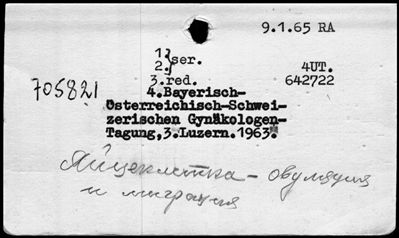 9.1.65 RA
1.} ser.
2.}
4UT.
3.red.
642722
705821
4.Bayerisch-
Österreichisch-Schwei-
zerischen Gynäkologen-
Tagung,3.Luzern.1963.
Яйцеклетка - овуляция
и миграция